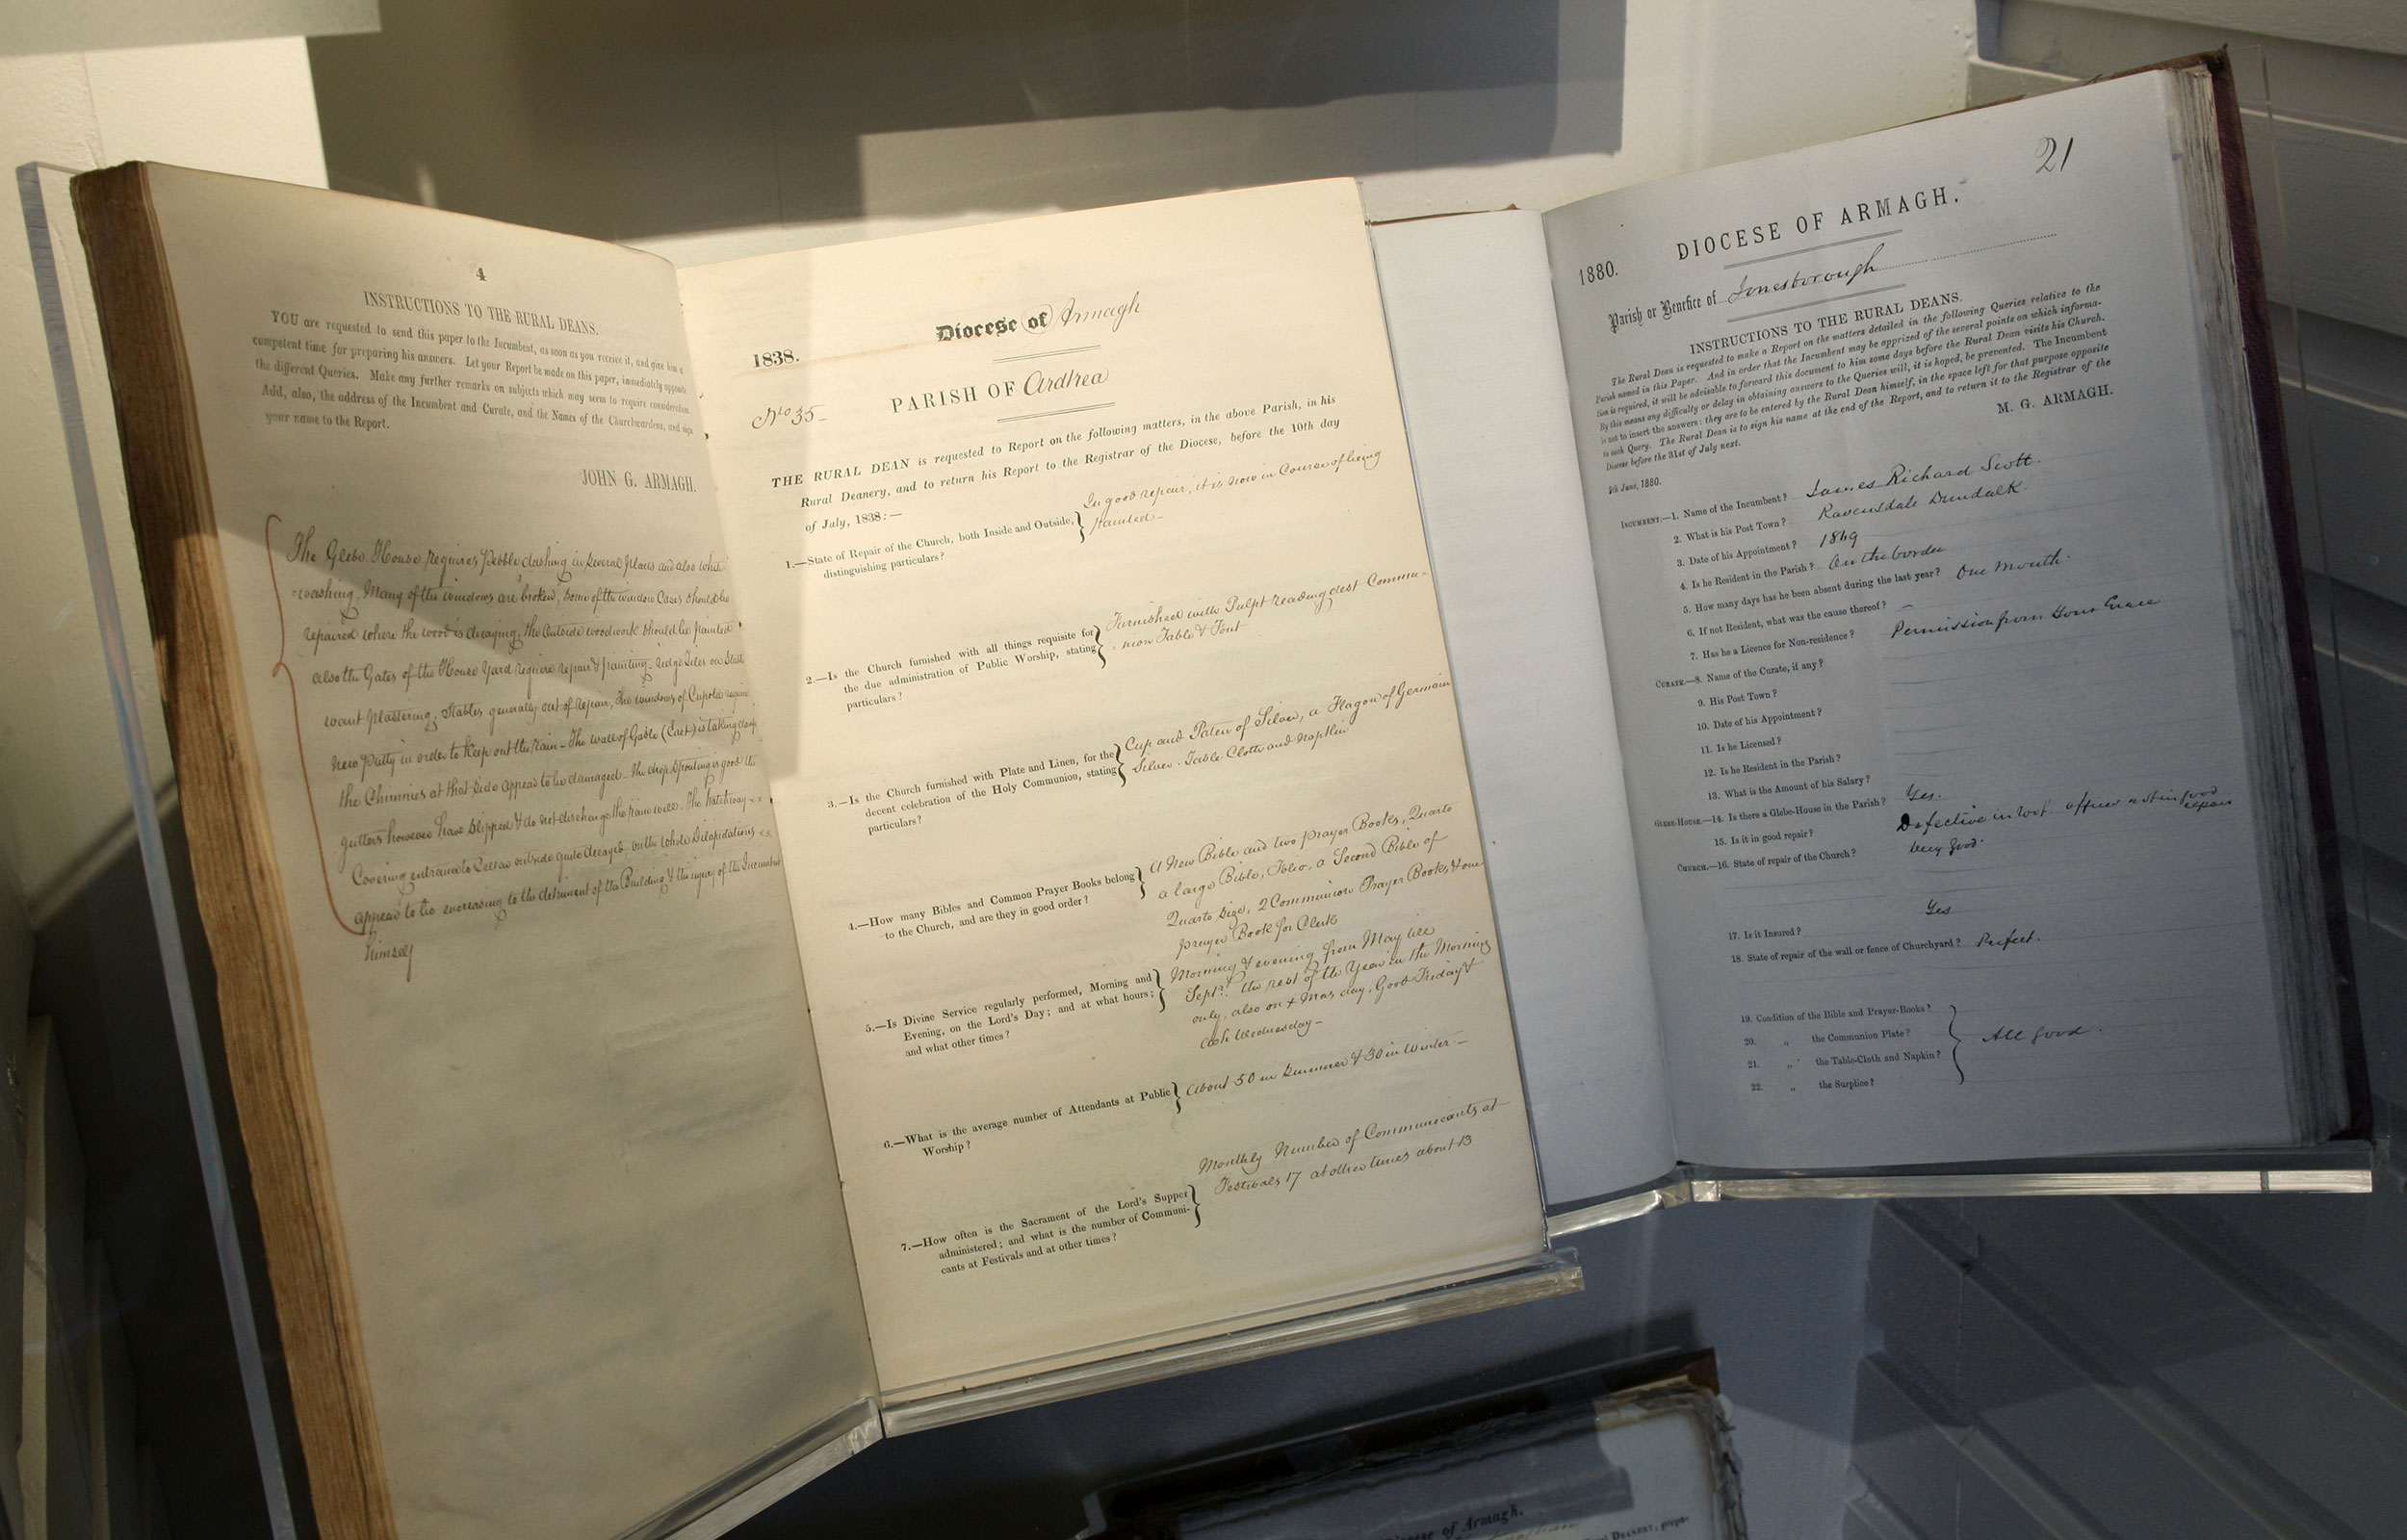 4
INSTRUCTIONS TO THE RURAL DEANS.
YOU are requested to send this paper to the Incumbent, as soon as you receive it, and give him a
competent time for preparing his answers. Let your Report be made on this paper, immediately opposite
the different Queries. Make any further remarks on subjects which may seem to require consideration.
Add, also, the address of the Incumbent and Curate, and the Names of the Churchwardens, and sign
your name to the Report.
JOHN G. ARMAGH.
The Glebe House requires pebble dashing in several places and also white
-washing. Many of the windows are broken, some of the window Cases should be
repaired where the wood is decaying, the outside woodwork should be painted
also the Gates of the House Yard require repair & painting - ridge Tiles on
want plastering, Stables generally out of repair, the windows of Cupola require
new putty in order to keep out the rain - The wall of Gable (East) is taking damp
the Chimnies at that side appear to be damaged - the drop spouting is good the
gutters however have slipped & do not discharge the rain well. The hatchway
Covering entrance to Cellar outside quite decayed, on the whole Dilapidations
appear to be encreasing to the detriment of the Building & the injury of the Incumbent
himself
Diocese of Armagh
1838.
PARISH OF Ardtrea
No 35-
THE RURAL DEAN is requested to Report on the following matters, in the above Parish, in his
Rural Deanery, and to return his Report to the Registrar of the Diocese, before the 10th day
of July, 1838:—
1.—State of Repair of the Church, both Inside and Outside,
distinguishing particulars?
In good repair, it is now in Course of being
painted-
2.—Is the Church furnished with all things requisite for
the due administration of Public Worship, stating
particulars?
Furnished with Pulpt reading desk Commu-
-nion Table & Font
3.—Is the Church furnished with Plate and Linen, for the
decent celebration of the Holy Communion, stating
particulars?
Cup and Paten of Silver, a Flagon of German
Silver. Table Cloth and napkin
4.—How many Bibles and Common Prayer Books belong
to the Church, and are they in good order?
A New Bible and two prayer Books, Quarto
a large Bible, Folio, a Second Bible of
Quarto size, 2 Communion Prayer Books, & one
prayer Book for Clerk
5.—Is Divine Service regularly performed, Morning and
Evening, on the Lord's Day; and at what hours;
and what other times?
Morning & evening from May till
Septr. the rest of the Year in the Morning
only, also on Xmas day, Good Friday &
Ash Wednesday-
6.—What is the average number of Attendants at Public
Worship?
About 50 in Summer & 30 in Winter-
7.—How often is the Sacrament of the Lord's Supper
administered; and what is the number of Communi-
cants at Festivals and at other times?
Monthly Number of Communicants at
Festivals 17 at other times about 13
21
DIOCESE OF ARMAGH.
1880.
Parish or Benefice of Jonesborough
INSTRUCTIONS TO THE RURAL DEANS.
The Rural Dean is requested to make a Report on the matters detailed in the following Queries relative to the
Parish named in this Paper. And in order that the Incumbent may be apprized of the several points on which informa-
tion is required, it will be advisable to forward this document to him some days before the Rural Dean visits his Church.
By this means any difficulty or delay in obtaining answers to the Queries will, it is hoped, be prevented. The Incumbent
is not to insert the answers: they are to be entered by the Rural Dean himself, in the space left for that purpose opposite
to each Query. The Rural Dean is to sign his name at the end of the Report, and to return it to the Registrar of the
Diocese before the 31st of July next.
M. G. ARMAGH.
9th June, 1880.
INCUMBENT.—1. Name of the Incumbent? James Richard Scott.
2. What is his Post Town? Ravensdale Dundalk.
3. Date of his Appointment? 1869
4. Is he Resident in the Parish? On the border
5. How many days has he been absent during the last year? One Month.
6. If not Resident, what was the cause thereof? —
7. Has he a Licence for Non-residence? Permission from Your Grace
CURATE.—8. Name of the Curate, if any?
9. His Post Town?
10. Date of his Appointment?
11. Is he Licensed?
12. Is he Resident in the Parish?
13. What is the Amount of his Salary?
GLEBE-HOUSE.—14. Is there a Glebe-House in the Parish? Yes.
15. Is it in good repair? Defective in roof. offices not in good repair
CHURCH.—16. State of repair of the Church? Very good.
17. Is it Insured? Yes
18. State of repair of the wall or fence of Churchyard? Perfect.
19. Condition of the Bible and Prayer-Books?
20. „ the Communion Plate?
21. „ the Table-Cloth and Napkin?
22. „ the Surplice?
All good.
Diocese of Armagh.